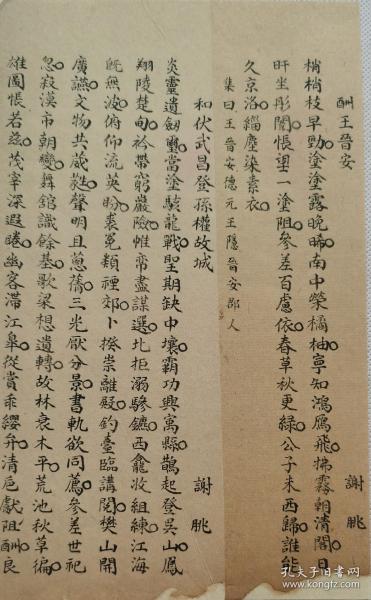 酬王晉安 謝朓
梢梢枝早勁塗塗露晚晞南中榮橘柚寧知鴻鴈飛拂霧朝清閣日
旰坐彤闈悵望一塗阻參差百慮依春草秋更綠公子未西歸誰能
久京洛緇塵染素衣
集曰王晉安德元王隱晉安郡人
和伏武昌登孫權故城 謝朓
炎靈遺劒璽當塗駭龍戰聖期缺中壤霸功興寓縣鵲起登吳山鳳
翔陵楚甸衿帶窮巖險帷帟盡謀選北拒溺驂鑣西龕收組練江海
既無波俯仰流英盼裘冕類禋郊卜揆崇離殿釣臺臨講閱樊山開
廣讌文物共葳蕤聲明且蔥蒨三光厭分景書軌欲同薦參差世祀
忽寂漠市朝變舞館識餘基歌梁想遺轉故林衰木平荒池秋草徧
雄圖悵若茲茂宰深遐睠幽客滯江臯從賞乖纓弁清巵獻阻酬良
孔夫子旧书网